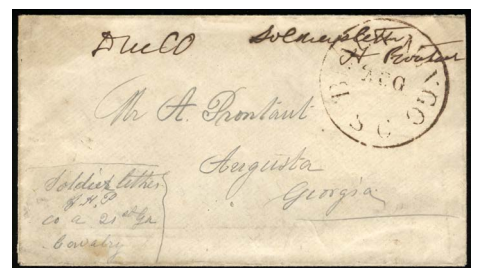 Due CO Soldiers letter
H. Prontaut
AUG
S C
Mr A. Prontaut
Augusta
Georgia
Soldier letter
of H. P.
co a 21st Ga
Cavalry